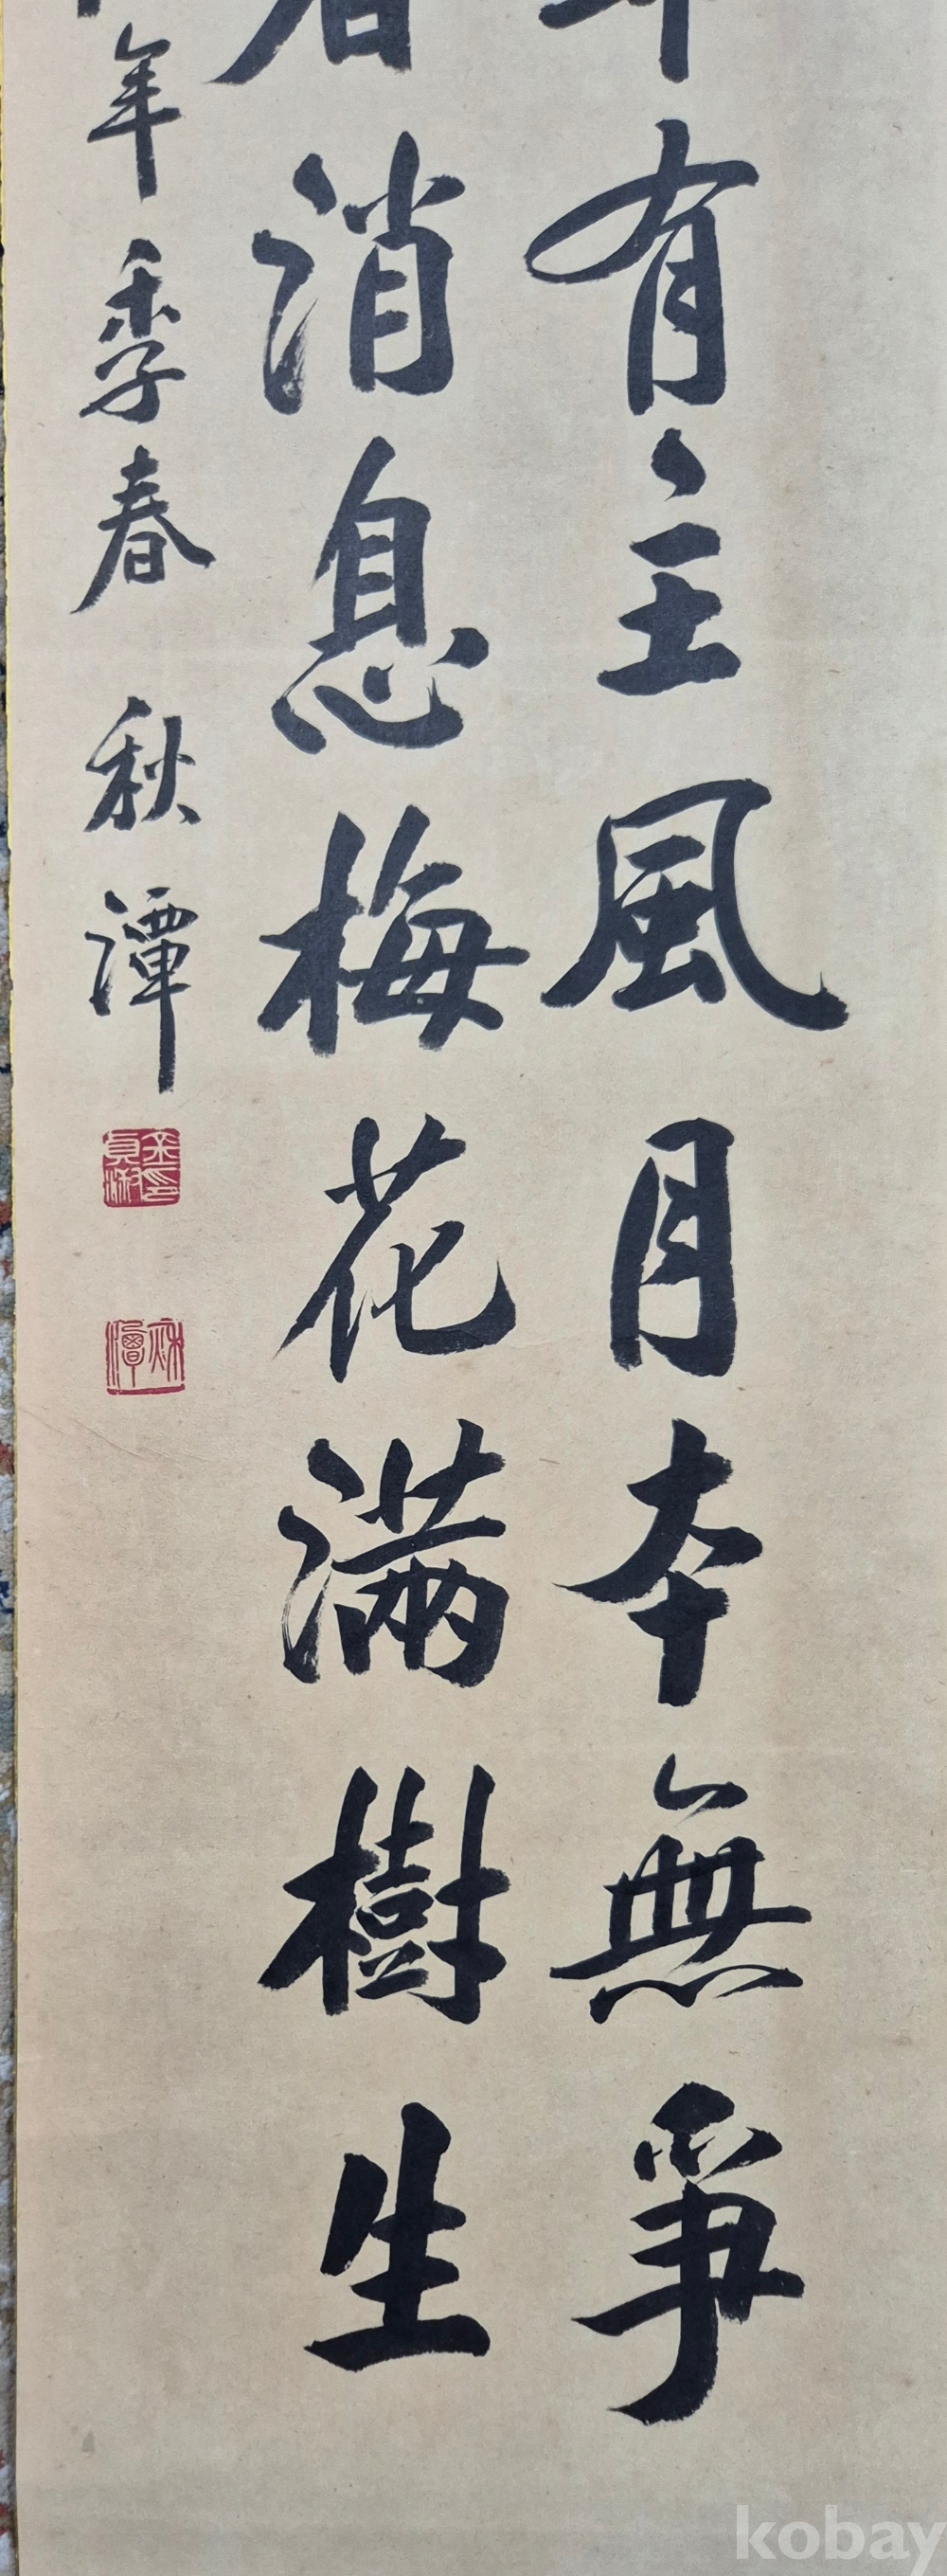 有主風月本無爭
消息梅花滿樹生
年季春 秋潭
秋潭
kobay